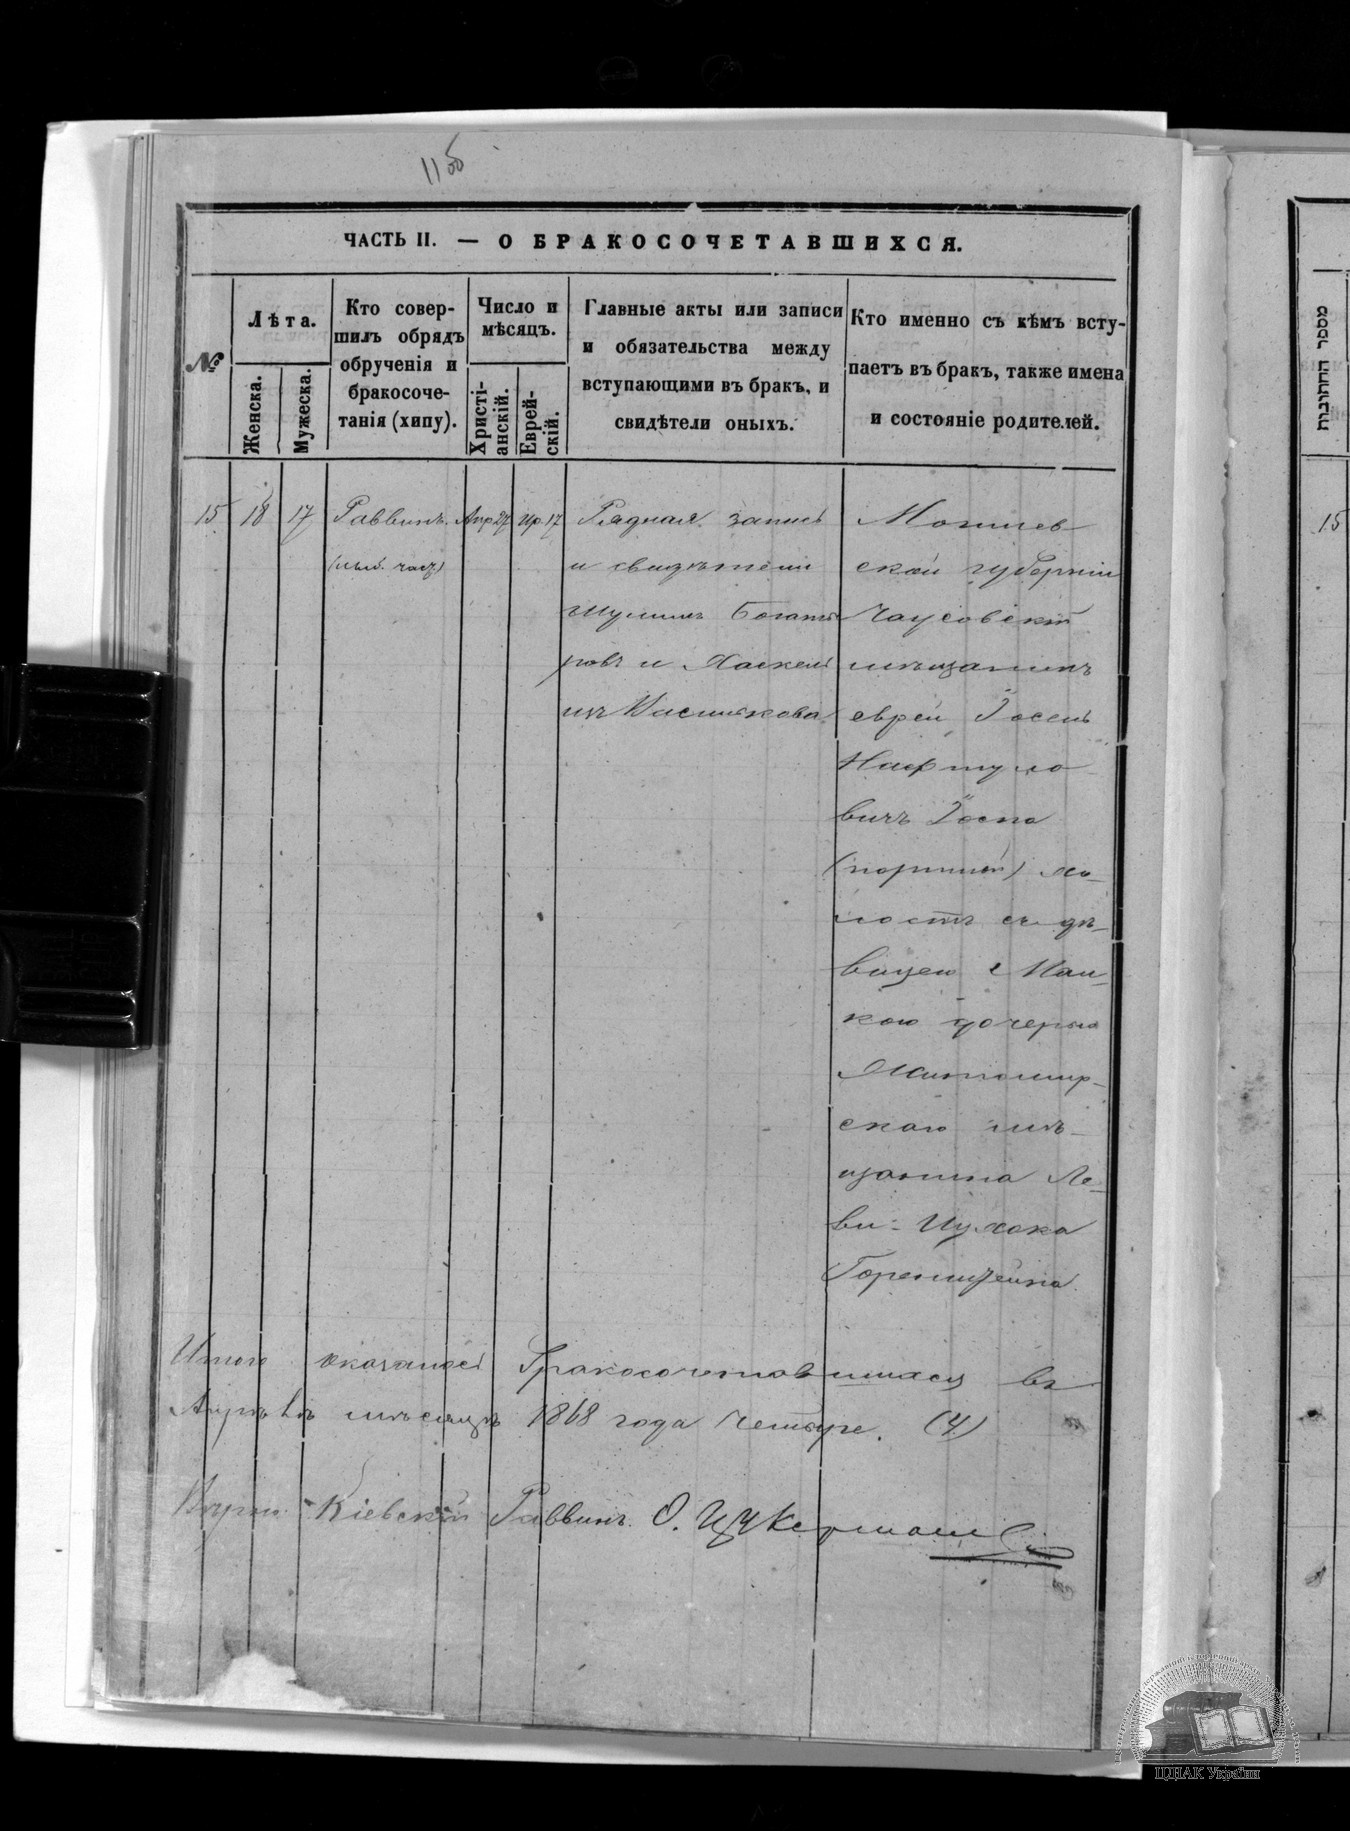 11об
ЧАСТЬ II. — О БРАКОСОЧЕТАВШИХСЯ.
№
Лѣта.
Женска.
Мужеска.
Кто совер-
шилъ обрядъ
обрученія и
бракосоче-
танія (хипу).
Число и
мѣсяцъ.
Христі-
анскій.
Еврей-
скій.
Главные акты или записи
и обязательства между
вступающими въ бракъ, и
свидѣтели оныхъ.
Кто именно съ кѣмъ всту-
паетъ въ бракъ, также имена
и состояніе родителей.
15
18
17
Раввинъ.
Апр. 27
Ир. 17
Рядная запись
и свидѣтели
Шулимъ Богаты
ровъ и Хаскель
изъ Василькова
Могилев
ской губерніи
Чаусовскій
мѣщанинъ
еврей Іосель
Нафтуло
вичъ
(портной) хо-
лостъ съ дѣ-
вицею Мал-
кою дочерью
Житомир-
скаго мѣ-
щанина Ле-
ви-Ицхока
Горенштейна
Итого оказалось бракосочетавшихся въ
Апрѣлѣ мѣсяцѣ 1868 года четыре. (4)
Кіевскій Раввинъ. О. Цукерман
מספר החתונות
15
ЦДІАК України